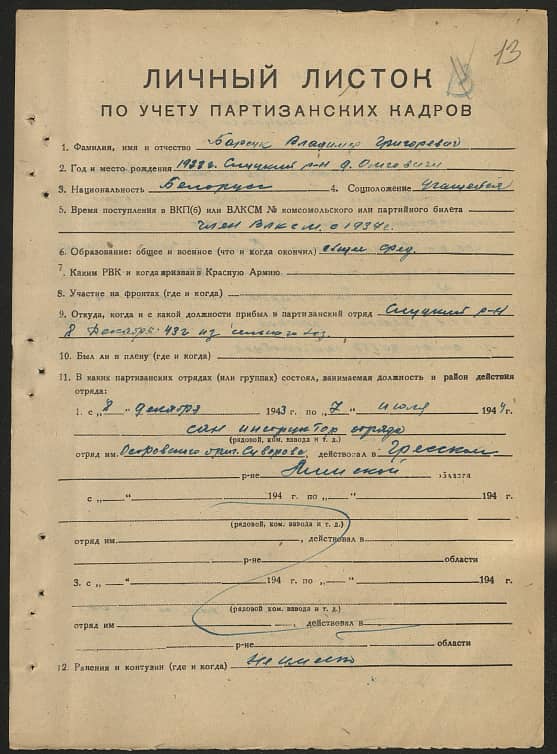 13
ЛИЧНЫЙ ЛИСТОК
ПО УЧЕТУ ПАРТИЗАНСКИХ КАДРОВ
1. Фамилия, имя и отчество Барсук Владимир Григоревич
2. Год и место рождения Слуцкий р-н д.
3. Национальность Белорус 4. Соцположение учащейся
5. Время поступления в ВКП(б) или ВЛКСМ № комсомольского или партийного билета
член ВЛКСМ с
6. Образование: общее и военное (что и когда окончил) общее сред.
7. Каким РВК и когда призван в Красную Армию
8. Участие на фронтах (где и когда)
9. Откуда, когда и с какой должности прибыл в партизанский отряд Слуцкий р-н
8 Декабря 43г из сельского хоз.
10. Был ли в плену (где и когда)
11. В каких партизанских отрядах (или группах) состоял, занимаемая должность и район действия
отряда:
1. с „8“ декабря 1943 г. по „7“ июля 1944 г.
сан инструктор отряда
(рядовой, ком. взвода и т. д.)
отряд им. Островского бриг. Суворова, действовал в Гресском
р-не Минской области
с „ “ 194 г. по „ “ 194 г.
(рядовой, ком. взвода и т. д.)
отряд им , действовал в
р-не области
3. с „ “ 194 г. по „ “ 194 г.
(рядовой, ком. взвода и т. д.)
отряд им , действовал в
р-не области
12. Ранения и контузии (где и когда) Не имею